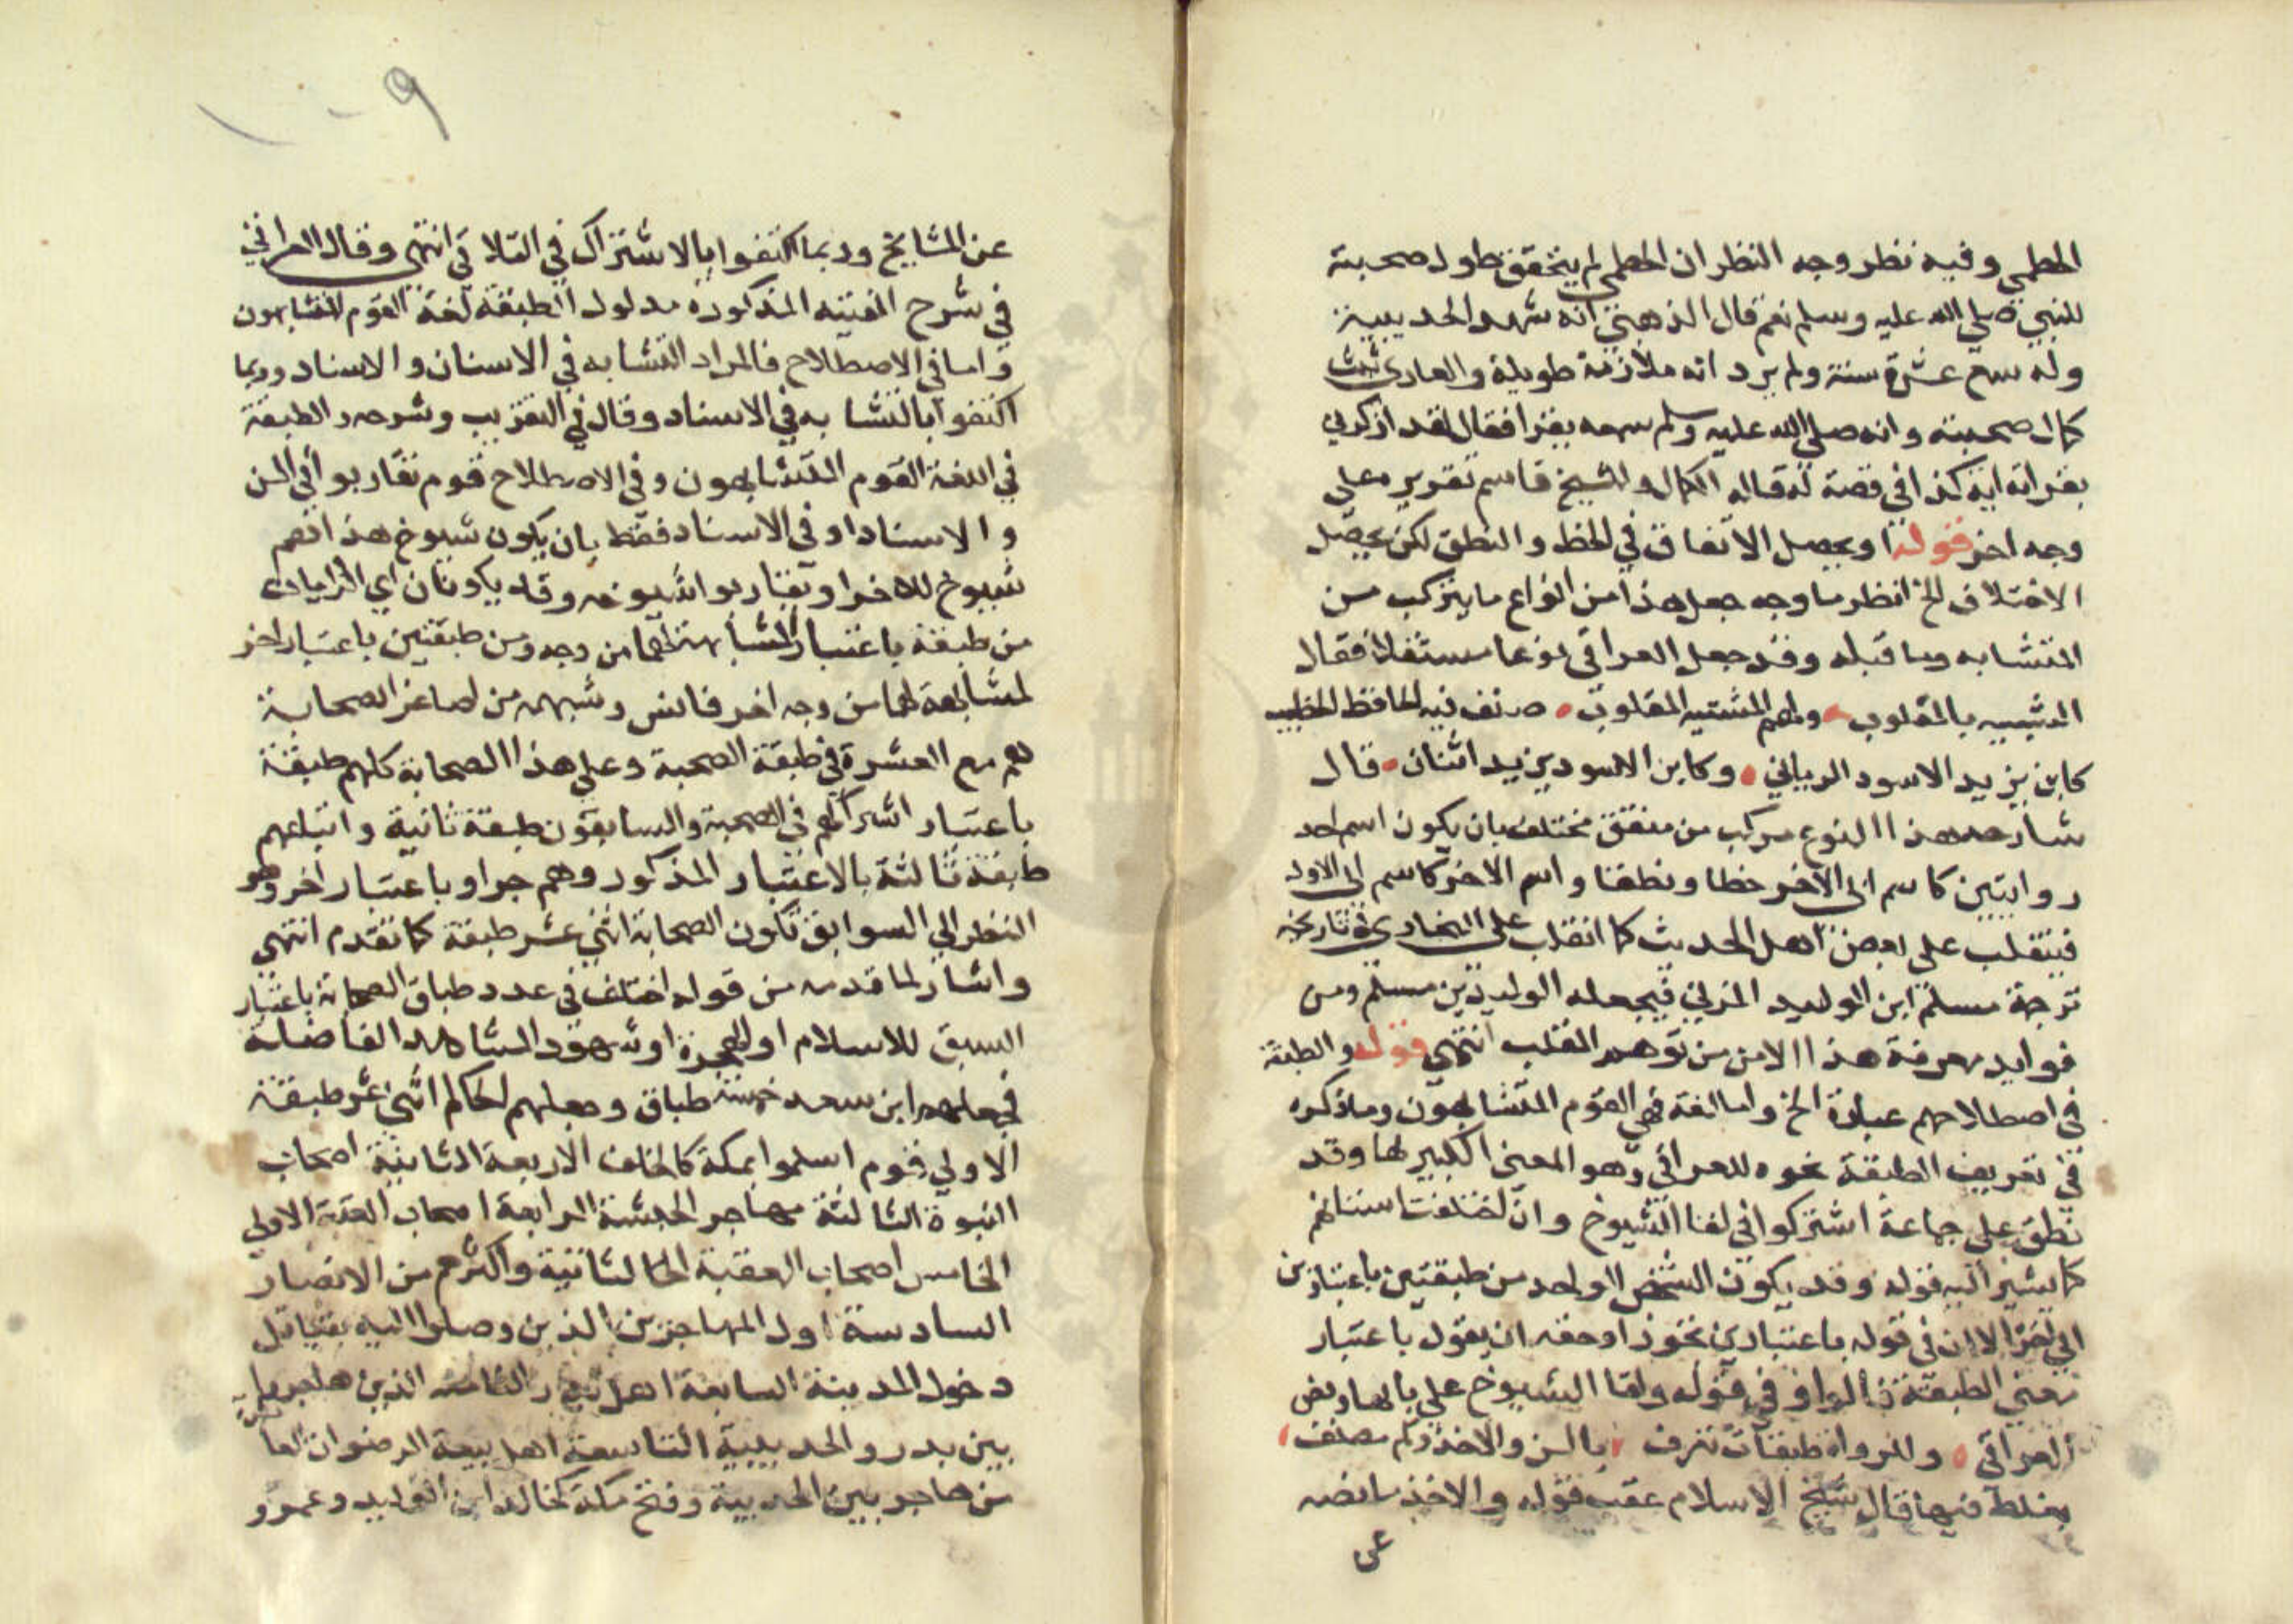 الخطمي وفيه نظر وجه النظر ان الخطمي لم يتحقق طول صحبته
للنبي صلي الله عليه وسلم نعم قال الذهبي انه شهد الحديبية
وله سبع عشرة سنة ولم يرد انه ملازمة طويلة والعاري ثبت
كمال صحبته وانه صلى الله عليه وسلم سمعه يقرا فقال لقد اذكرني
بقراته اية كذا في قصة له قاله الكمال وللشيخ قاسم تقرير معلي
وجه اخر قوله او يحصل الاتفاق في الخط والنطق لكن يحصل
الاختلاف الخ انظر ما وجه جعل هذا من انواع ما يتركب من
المتشابه وما قبله وقد جعل العراقي نوعا مستقلا فقال
المشبيه بالمقلوب ولهم المشتبه المقلوب صنف فيه الحافظ الخطيب
كابن يزيد الاسود الرباني وكابن الاسود يزيد اثنان قال
شارحه هذا النوع مركب من متفق مختلف بان يكون اسم احد
روايتين كاسم ابي الآخر خطا ونطقا واسم الاخر كاسم ابي الاول
فينقلب على بعض اهل الحديث كما انقلب على البخاري في تاريخه
ترجمة مسلم ابن الوليد المزني فيجعله الوليد بن مسلم ومن
فوايد معرفة هذا الامن من توهم القلب انتهي قوله والطبقة
في اصطلاحهم عبارة الخ واما لغة فهي القوم المتشابهون وما ذكره
في تعريف الطبقة نحوه للعراقي وهو المعنى الكبير لها وقد
تطلق على جماعة اشتركوا في لقا الشيوخ وان اختلفت اسنانهم
كما يشير اليه قوله وقد يكون الشخص الواحد من طبقتين باعتبارين
الي اخر الا ان في قوله باعتبارين تجوزا وحقه ان يقول باعتبار
معني الطبقة فالواو في قوله ولقا الشيوخ على بابها وبعض
العراقي وللرواة طبقات تعرف بالسن والاخذ وكم مصنف
يغلط فيها قال شيخ الاسلام عقب قوله والاخذ ما نصه
عن
عن المشايخ وربما اكتفوا بالاشتراك في التلاقي انتهى وقال العراقي
في شرح الفيته المذكورة مدلول الطبقة لغة القوم المتشابهون
واما في الاصطلاح فالمراد التشابه في الاسنان والاسناد وربما
اكتفوا بالتشابه في الاسناد وقال في التقريب وشرحه والطبقة
في اللغة القوم المتشابهون وفي الاصطلاح قوم تقاربوا في السن
والاسناد او في الاسناد فقط بان يكون شيوخ هذا هم
شيوخ للاخر او يقاربوا شيوخه وقد يكونان اي الراويان
من طبقة باعتبار لمشابهته لها من وجه ومن طبقتين باعتبار اخر
لمشابهة لها من وجه اخر فانس وشبهه من اصاغر الصحابة
هم مع العشرة في طبقة الصحبة وعلى هذا الصحابة كلهم طبقة
باعتبار اشتراكهم في الصحبة والسابقون طبقة ثانية واتباعهم
طبقة ثالثة بالاعتبار المذكور وهم جرا وباعتبار اخر وهو
النظر الي السوابق تكون الصحابة اثني عشر طبقة كما تقدم انتهى
واشار لما قدمه من قوله اختلف في عدد طباق الصحابة باعتبار
السبق للاسلام او الهجرة او شهود المشاهد الفاضلة
فجعلهم ابن سعد خمسة طباق وجعلهم الحاكم اثني عشر طبقة
الاولي قوم اسلموا بمكة كالخلفا الاربعة الثانية اصحاب
النبوة الثالثة مهاجر الحبشة الرابعة اصحاب العقبة الاولي
الخامس اصحاب العقبة الثانية واكثرهم من الانصار
السادسة اول المهاجرين الذين وصلوا اليه بقبا قبل
دخول المدينة السابعة اهل بدر الثامنة الذين هاجروا
بين بدر والحديبية التاسعة اهل بيعة الرضوان
من هاجر بين الحديبية وفتح مكة كخالد ابن الوليد وعمرو